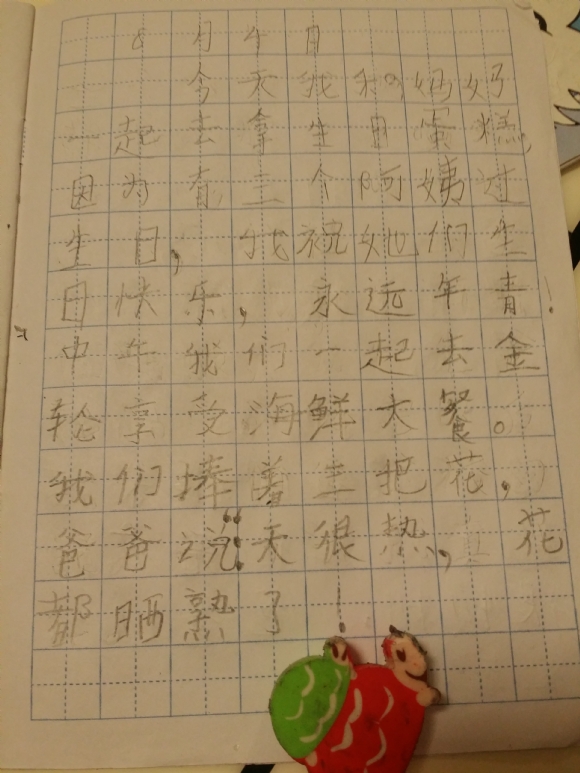 8月4日
今天我和妈妈
一起去拿生日蛋糕,
因为有三个阿姨过
生日,我祝她们生
日快乐,永远年青!
中午我们一起去金
轮享受海鲜大餐。
我们捧着三把花,
爸爸说:“天很热,花
都晒熟了!